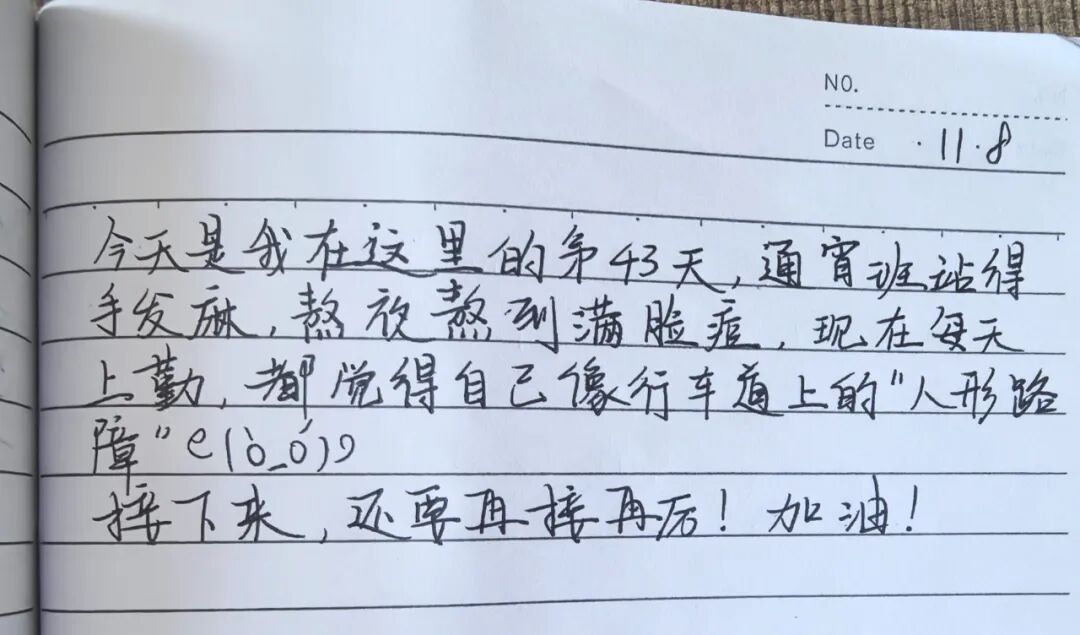 NO.
Date · 11·8
今天是我在这里的第43天，通宵班站得
手发麻，熬夜熬到满脸痘，现在每天
上勤，都觉得自己像行车道上的“人形路
障”e(ò_ó)9
接下来，还要再接再厉！加油！